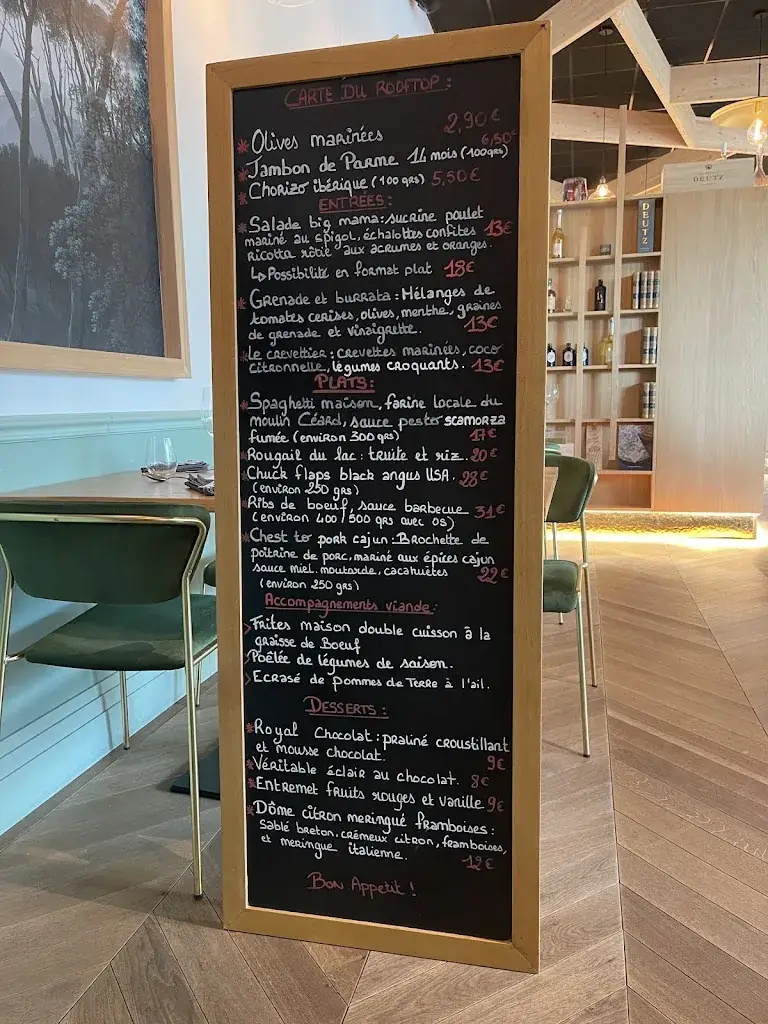 CARTE DU ROOFTOP :
* Olives marinées 2,90€
* Jambon de Parme 14 mois (100grs) 6,50€
* Chorizo ibérique (100 grs) 5,50€
ENTRÉES :
* Salade big mama : sucrine poulet
mariné au spigol, échalottes confites 13€
ricotta rôtie aux acrumes et oranges.
↳ Possibilité en format plat 18€
* Grenade et burrata : Mélanges de
tomates cerises, olives, menthe, graines
de grenade et vinaigrette. 13€
* Le crevettier : crevettes marinées, coco
citronnelle, légumes croquants. 13€
PLATS :
* Spaghetti maison, farine locale du
moulin Céard, sauce pesto scamorza
fumée (environ 300 grs) 17€
* Rougail du lac : truite et riz. 20€
* Chuck flaps black angus USA. 28€
(environ 250 grs)
* Ribs de boeuf, sauce barbecue 31€
(environ 400/500 grs avec os)
* Chest to pork cajun : Brochette de
poitrine de porc, mariné aux épices cajun
sauce miel, moutarde, cacahuètes 22€
(environ 250 grs)
Accompagnements viande :
> Frites maison double cuisson à la
graisse de Boeuf
> Poêlée de légumes de saison.
> Ecrasé de pommes de Terre à l'ail.
DESSERTS :
* Royal Chocolat : praliné croustillant
et mousse chocolat. 9€
* Véritable éclair au chocolat. 8€
* Entremet fruits rouges et vanille 9€
* Dôme citron meringué framboises :
Sablé breton, crémeux citron, framboises,
et meringue italienne. 12€
Bon Appetit !
DEUTZ
DEUTZ